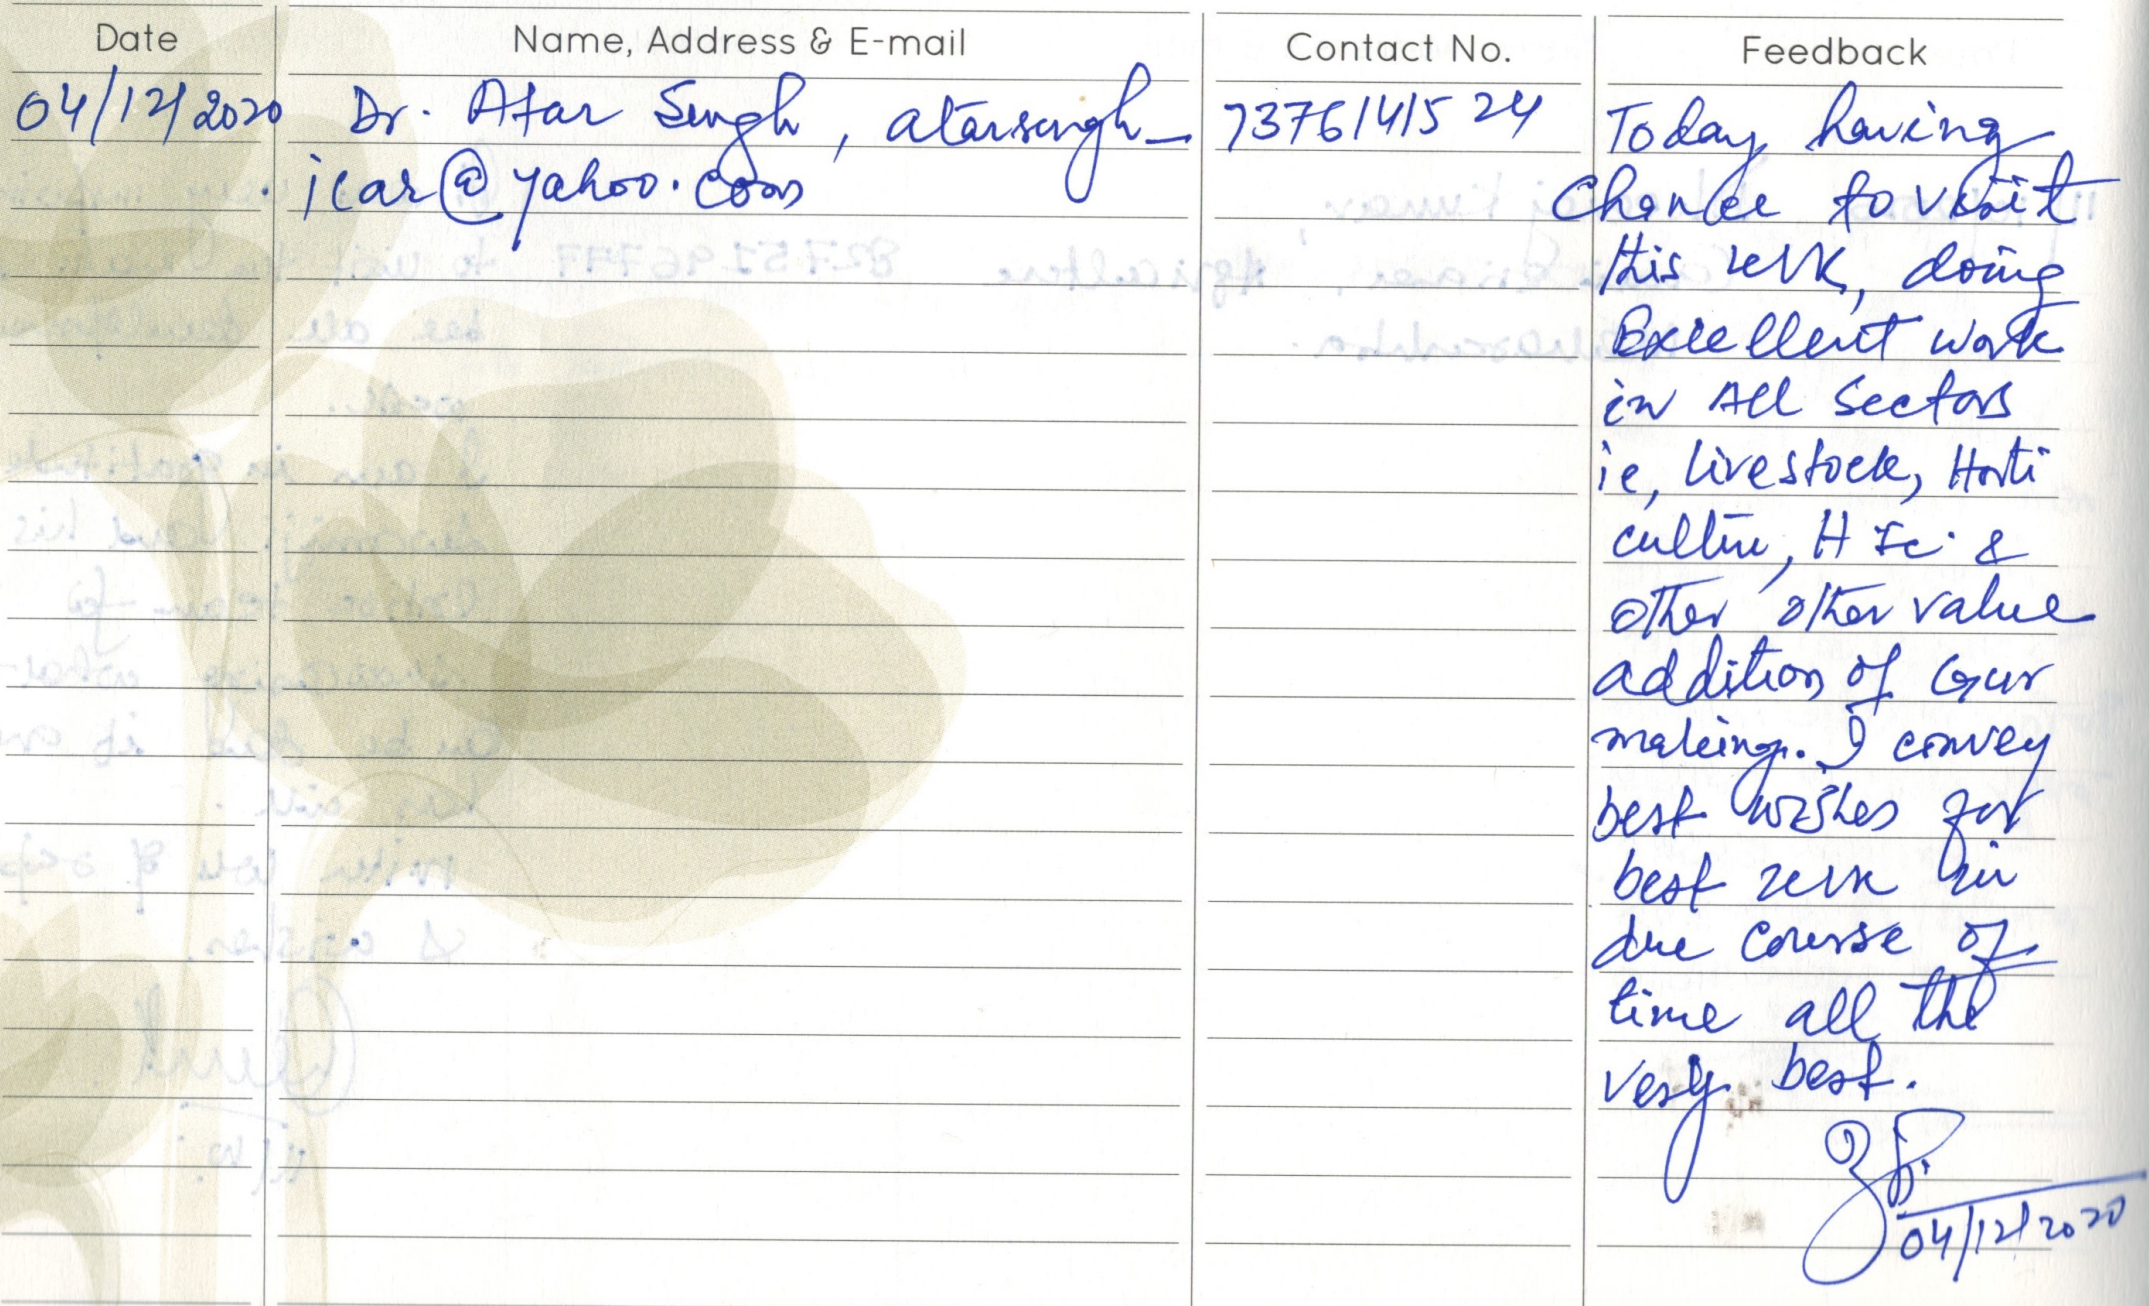 Date Name, Address & E-mail Contact No. Feedback
04/12/2020 Dr. Atar Singh, atarsingh_ 7376141524 Today having
icar@yahoo.com Chance to visit
this KVK, doing
Excellent work
in All Sectors
ie, livestock, Horti
culture, H Sc. &
other other value
addition of Gur
making. I convey
best wishes for
best KVK in
due course of
time all the
very best.
04/12/2020